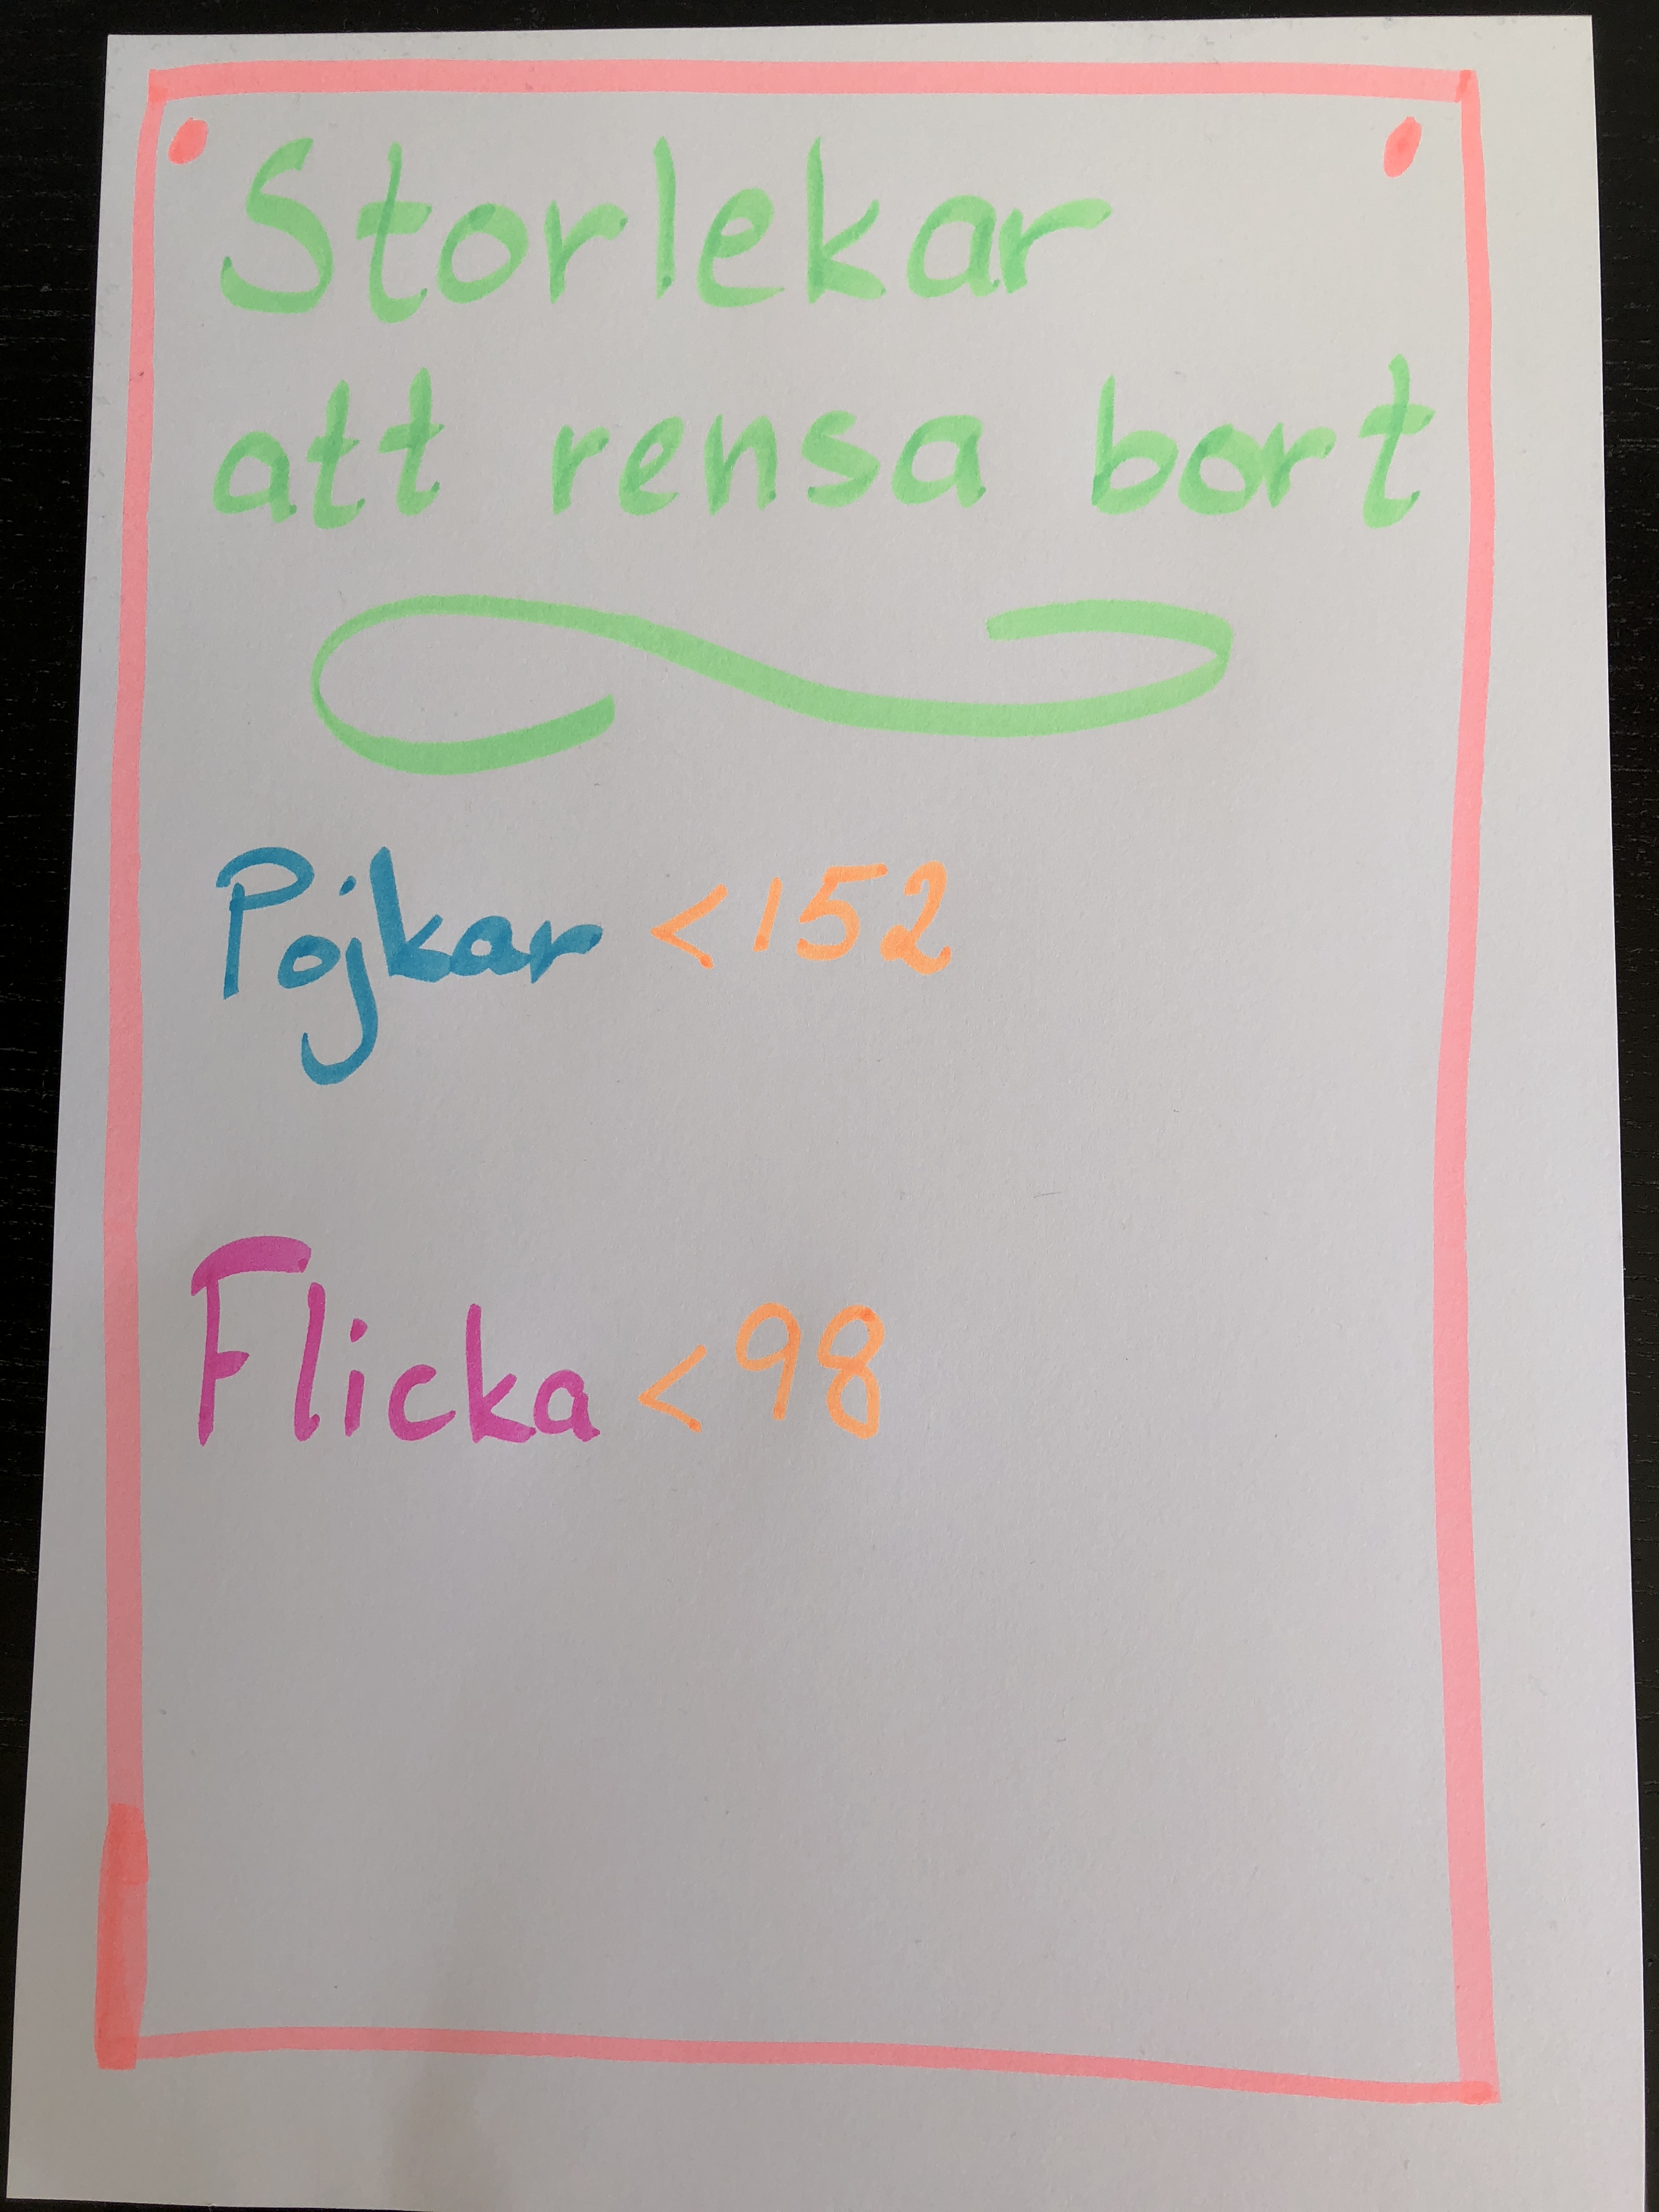 Storlekar
att rensa bort
Pojkar <152
Flicka <98